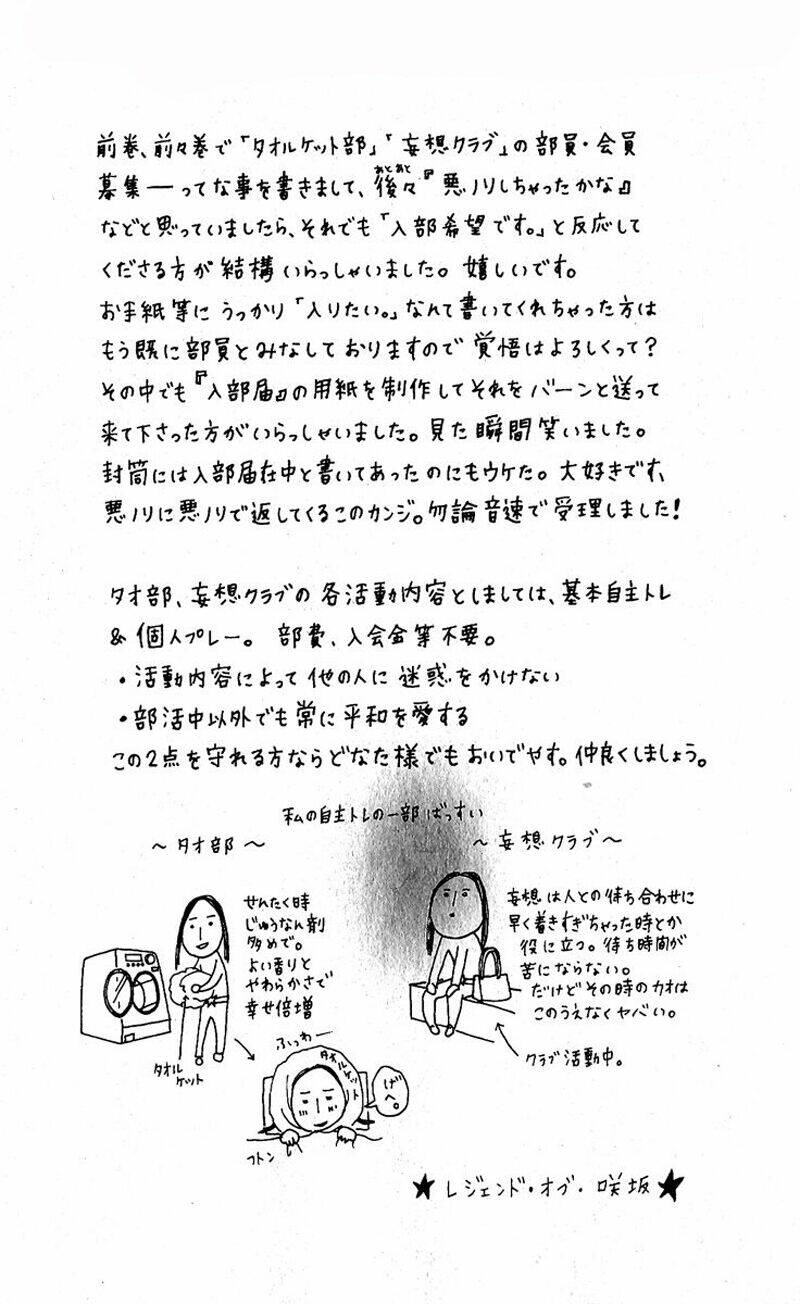 前巻、前々巻で「タオルケット部」「妄想クラブ」の部員・会員
募集―ってな事を書きまして、後々『悪ノリしちゃったかな』
あとあと
などと思っていましたら、それでも「入部希望です。」と反応して
くださる方が結構いらっしゃいました。嬉しいです。
お手紙等にうっかり「入りたい。」なんて書いてくれちゃった方は
もう既に部員とみなしておりますので覚悟はよろしくって?
その中でも『入部届』の用紙を制作してそれをバーンと送って
来て下さった方がいらっしゃいました。見た瞬間笑いました。
封筒には入部届在中と書いてあったのにもウケた。大好きです、
悪ノリに悪ノリで返してくるこのカンジ。勿論音速で受理しました!
タオ部、妄想クラブの各活動内容としましては、基本自主トレ
&個人プレー。部費、入会金等不要。
・活動内容によって他の人に迷惑をかけない
・部活中以外でも常に平和を愛する
この2点を守れる方ならどなた様でもおいでやす。仲良くしましょう。
私の自主トレの一部ばっすい
〜タオ部〜
せんたく時
じゅうなん剤
多めで。
よい香りと
やわらかさで
幸せ倍増
タオル
ケット
ふっわー
タオルケット
げへ。
フトン
〜妄想クラブ〜
妄想は人との待ち合わせに
早く着きすぎちゃった時とか
役に立つ。待ち時間が
苦にならない。
だけどその時のカオは
このうえなくヤバい。
クラブ活動中。
★レジェンド・オブ・咲坂★